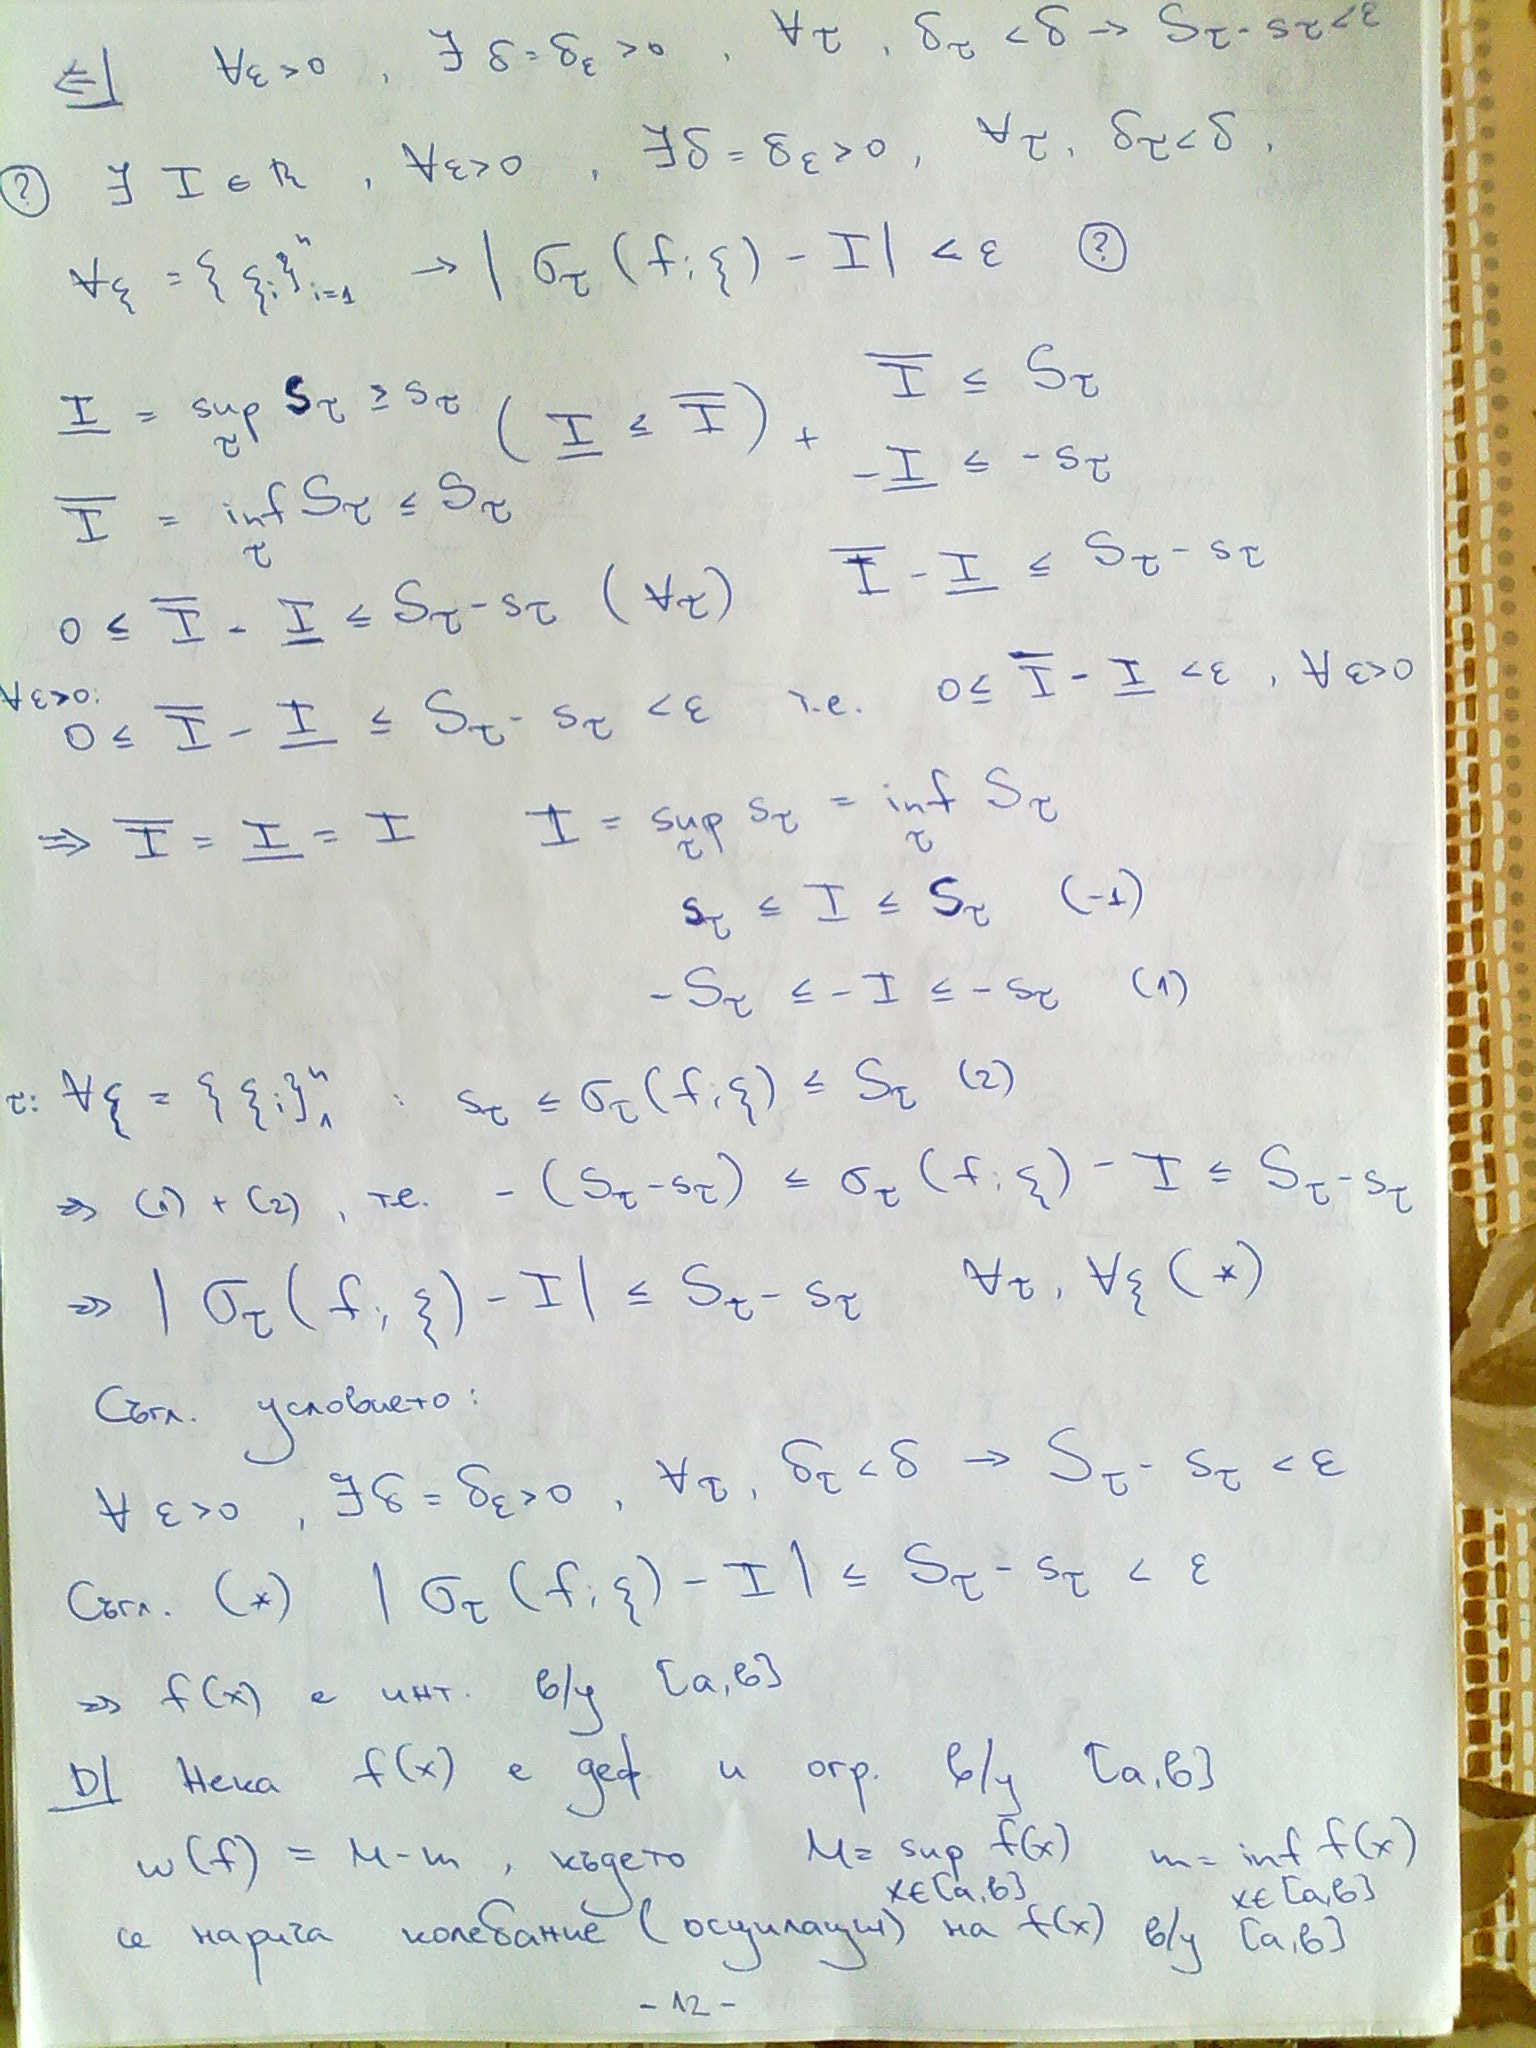 ⇐| ∀ε>0 , ∃ δ=δ_ε>0 , ∀τ , δ_τ<δ → S_τ-s_τ<ε
(?) ∃ I∈ℝ , ∀ε>0 , ∃δ=δ_ε>0 , ∀τ, δ_τ<δ ,
∀ξ={ξ_i}_{i=1}^n → |σ_τ(f;ξ)-I|<ε (?)
I̲ = sup_τ s_τ ≥ s_τ ( I̲ ≤ I̅ ) + I̅ ≤ S_τ
-I̲ ≤ -s_τ
I̅ = inf_τ S_τ ≤ S_τ
I̅ - I̲ ≤ S_τ-s_τ
0 ≤ I̅ - I̲ ≤ S_τ-s_τ (∀τ)
∀ε>0: 0 ≤ I̅ - I̲ ≤ S_τ-s_τ <ε т.е. 0≤ I̅ - I̲ <ε , ∀ε>0
⇒ I̅ = I̲ = I I = sup_τ s_τ = inf_τ S_τ
s_τ ≤ I ≤ S_τ (-1)
-S_τ ≤ -I ≤ -s_τ (1)
τ: ∀ξ = {ξ_i}_1^n : s_τ ≤ σ_τ(f;ξ) ≤ S_τ (2)
⇒ (1) + (2) , т.е. -(S_τ-s_τ) ≤ σ_τ(f;ξ) - I ≤ S_τ-s_τ
⇒ |σ_τ(f;ξ)-I| ≤ S_τ-s_τ ∀τ, ∀ξ (*)
Съгл. условието:
∀ε>0 , ∃δ=δ_ε>0 , ∀τ, δ_τ<δ → S_τ-s_τ<ε
Съгл. (*) |σ_τ(f;ξ)-I| ≤ S_τ-s_τ < ε
⇒ f(x) е инт. в/у [a,b]
D| Нека f(x) е деф. и огр. в/у [a,b]
w(f) = M-m , където M= sup_{x∈[a,b]} f(x) m= inf_{x∈[a,b]} f(x)
се нарича колебание (осцилация) на f(x) в/у [a,b]
- 12 -